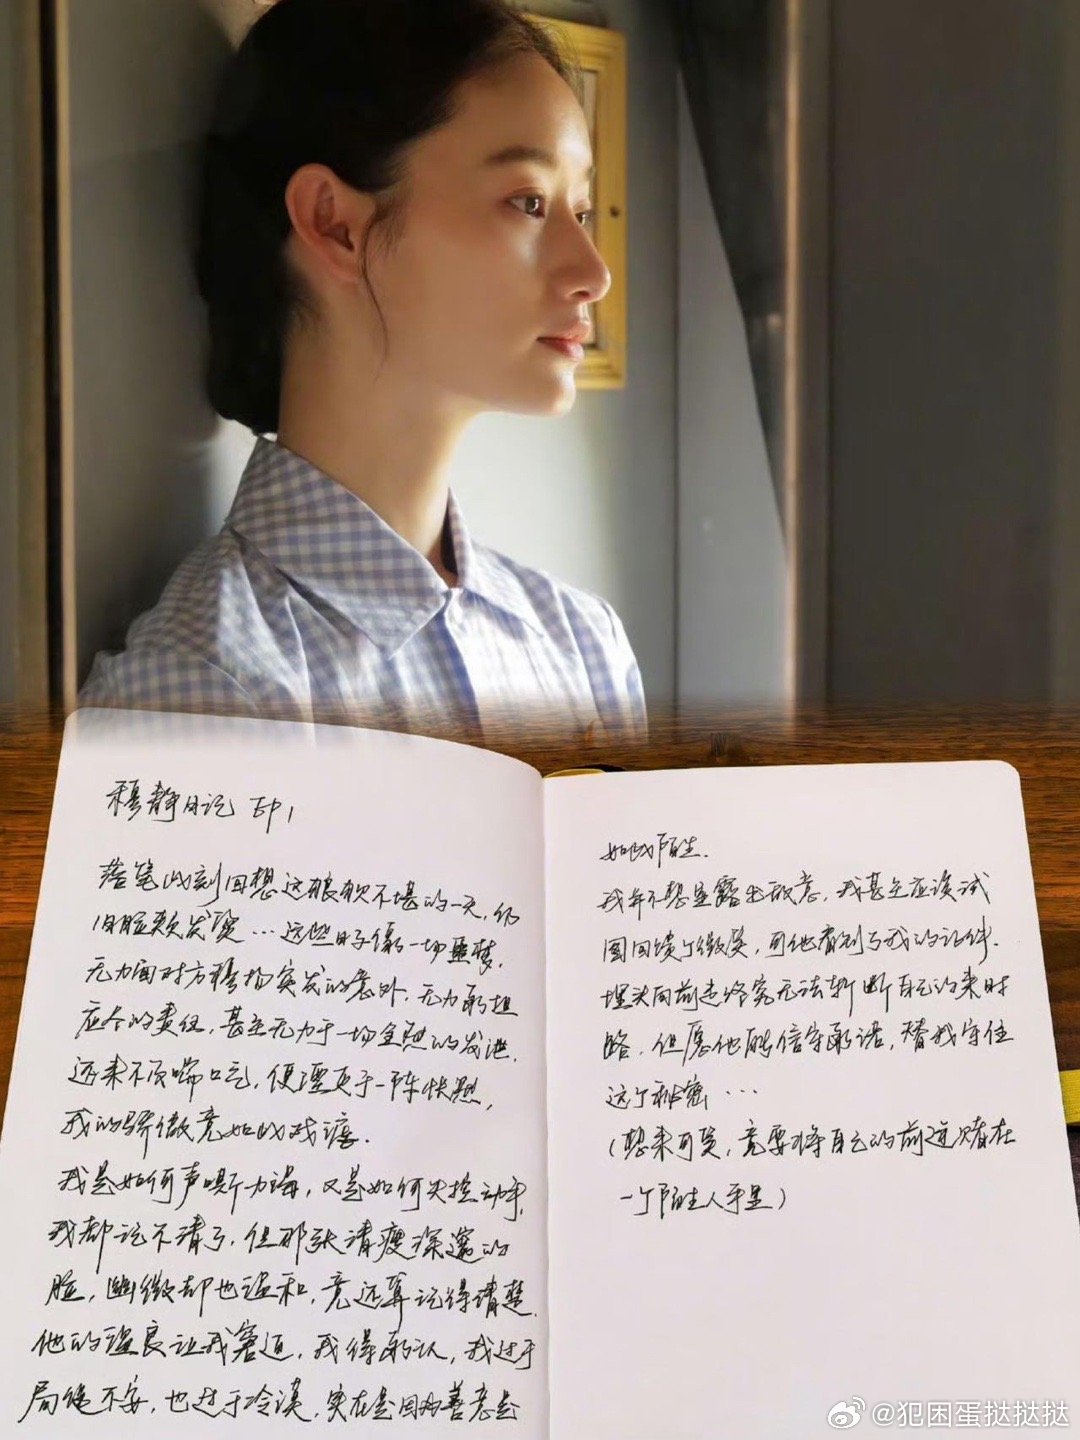 穆静日记 EP1
落笔此刻回想这狼狈不堪的一天,仍
旧脸颊发烫…这些日子像一场噩梦,
无力面对方穆扬突发的意外,无力承担
应尽的责任,甚至无力于一场全然的发泄,
还来不及喘口气,便湮灭于一阵快感,
我的骄傲竟如此戏谑.
我是如何声嘶力竭,又是如何失控动手,
我都记不清了.但那张清瘦深邃的
脸,幽微却也温和,竟还算记得清楚.
他的温良让我窘迫,我得承认,我过于
局促不安,也过于冷漠,实在是因为善意是
如此陌生.
我并不想显露出敌意,我甚至应该试
图回馈个微笑,可他看到了我的证件.
埋头向前走终究无法斩断自己的来时
路,但愿他能信守承诺,替我守住
这个秘密…
(想来可笑,竟要将自己的前途赌在
一个陌生人手里)
@犯困蛋挞挞挞